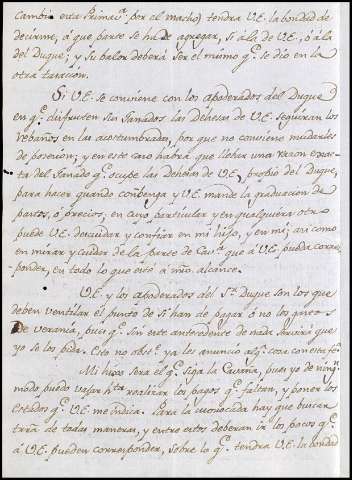 cambie esta Primavª por el macho) tendra V.E. la bondad de
decirme, á que parte se ha de agregar, si á la de V.E. ó á la
del Duque; y su balor deberá ser el mismo qe. se dio en la
otra tasacion.
Si V.E. se conviene con los apoderados del Duque
en qe. disfruten sus Ganados las Dehesas de V.E. seguiran los
rebaños en las acostumbradas, por que no conviene mudarles
de posesion; y en este caso habrá que llebar una razon exac-
ta del Ganado qe. ocupe las Dehesas de V.E., propio del Duque,
para hacer quando conbenga y V.E. mande la graduacion de
pastos, ó precios; en cuyo particular y en qualquiera otro
puede V.E. descuidar y confiar en mi hijo, y en mi; asi como
en mirar y cuidar de la parte de Cavª. que á V.E. pueda corres-
ponder, en todo lo que esté á mis alcances.
V.E. y los apoderados del Sr. Duque son los que
deben ventilar el punto de si han de pagar ó no los
de verania, pues qe. sin este antecedente de nada servirá que
yo se los pida. Esto no obste. ya les anuncio algª. cosa con esta fha.
Mi hijo será el qe. siga la Cavaña, pues yo de ning.
modo puedo dejar hta. realizar los pagos qe. faltan, y poner los
Estados qe. V.E. me indica. Para la que hay que buscar
de todas maneras, y entre estos deberan ir los pocos qe.
á V.E. pueden corresponder, sobre lo qe. tendra V.E. la bondad